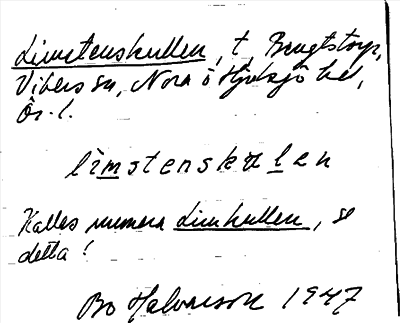 Limstenskullen, t. Bengtstorp,
Vikers sn, Nora o Hjulsjö hd,
Ör. l.
limstenskulen
Kallas numera Limkullen, se
detta!
Bo Halvarson 1947